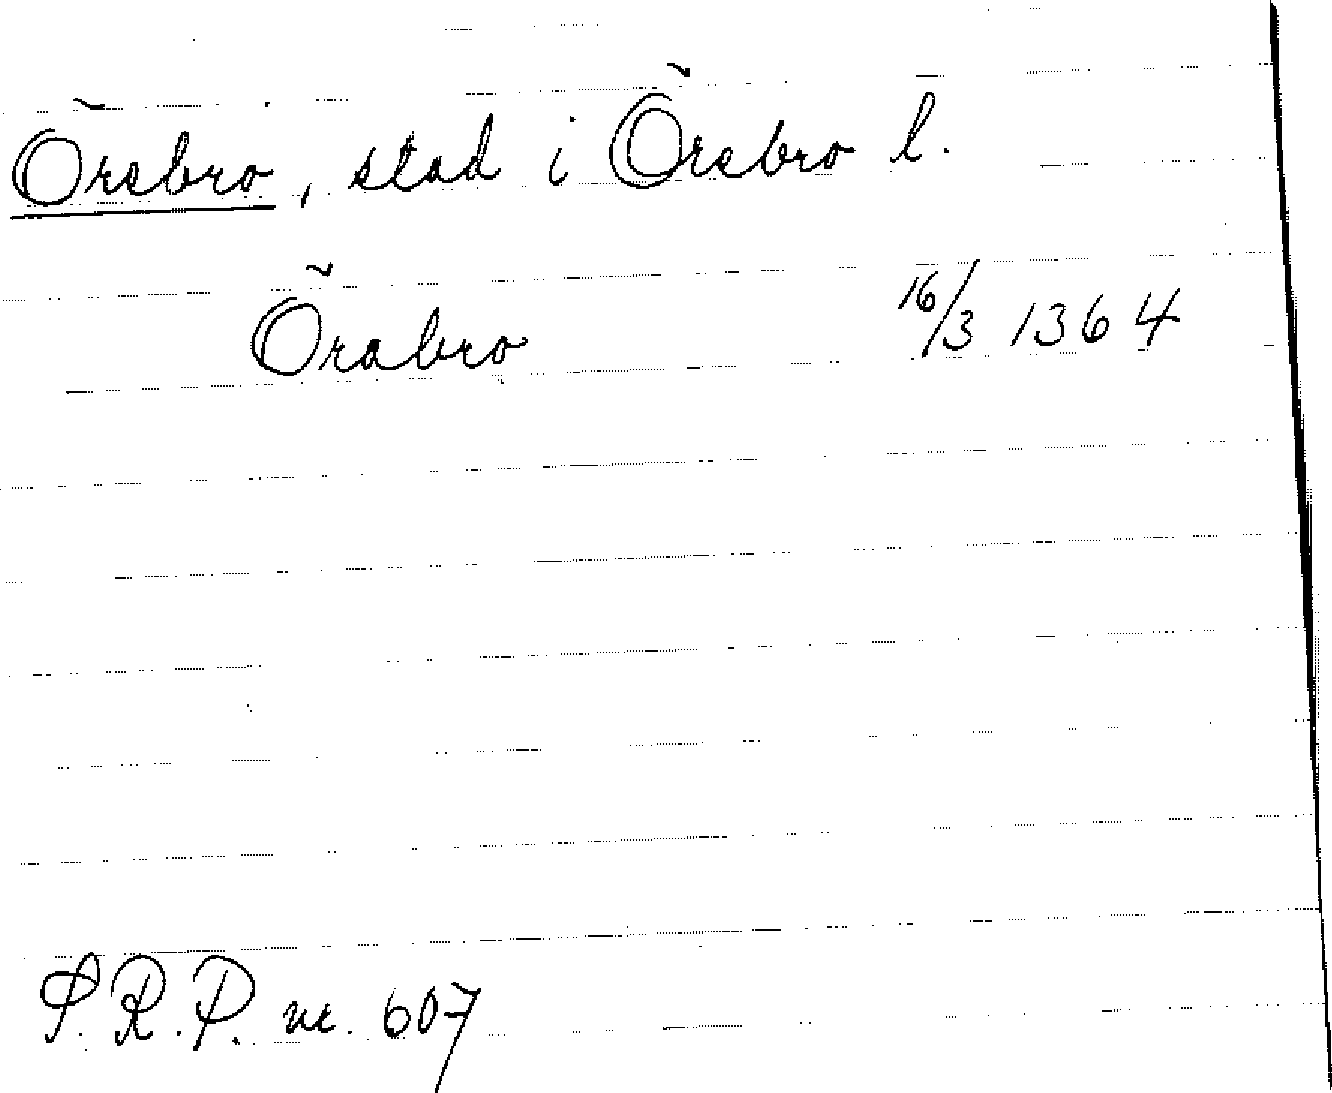 Örebro, stad i Örebro l.
Örabro 16/3 1364
S.R.P. nr. 607